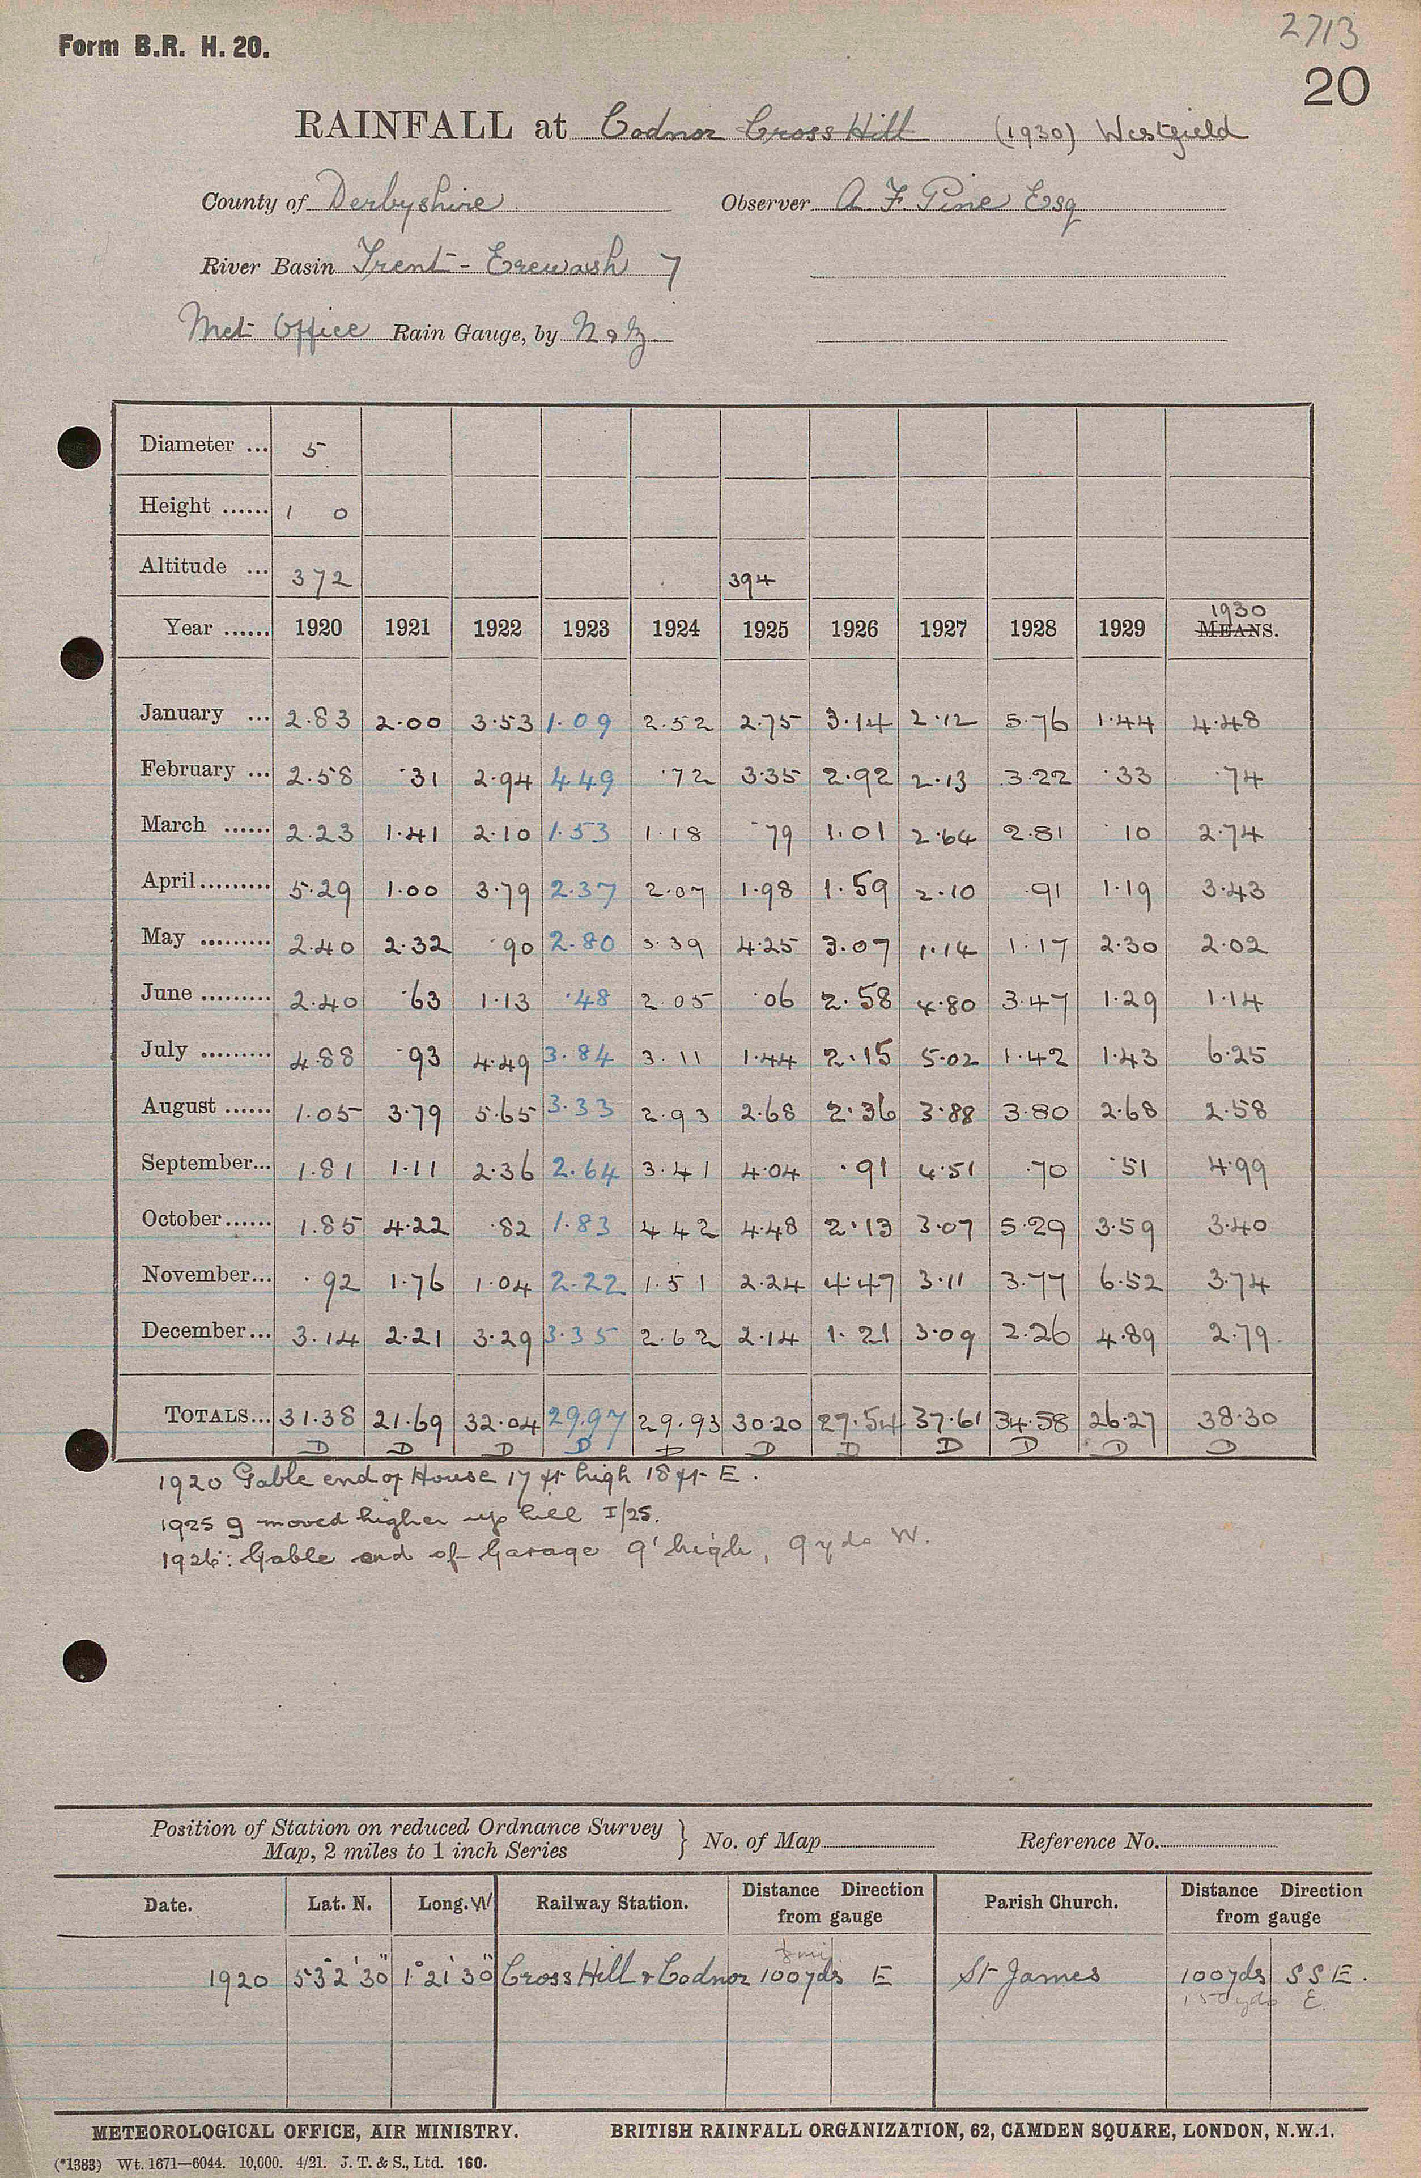 2713
Form B.R. H. 20.
20
RAINFALL at Codnor Cross Hill (1930) Westfield
County of Derbyshire Observer A. F. Pine Esq
River Basin Trent - Erewash 7
Met Office Rain Gauge, by N & Z
Diameter ... 5
Height ...... 1 0
Altitude ... 372 394
1930
Year ...... 1920 1921 1922 1923 1924 1925 1926 1927 1928 1929 MEANS.
January ... 2.83 2.00 3.53 1.09 2.52 2.75 3.14 2.12 5.76 1.44 4.48
February ... 2.58 .31 2.94 4.49 .72 3.35 2.92 2.13 3.22 .33 .74
March ...... 2.23 1.41 2.10 1.53 1.18 .79 1.01 2.64 2.81 .10 2.74
April ......... 5.29 1.00 3.79 2.37 2.07 1.98 1.59 2.10 .91 1.19 3.43
May ......... 2.40 2.32 .90 2.80 3.39 4.25 3.07 1.14 1.17 2.30 2.02
June ......... 2.40 .63 1.13 .48 2.05 .06 2.58 4.80 3.47 1.29 1.14
July ......... 4.88 .93 4.49 3.84 3.11 1.44 2.15 5.02 1.42 1.43 6.25
August ...... 1.05 3.79 5.65 3.33 2.93 2.68 2.36 3.88 3.80 2.68 2.58
September... 1.81 1.11 2.36 2.64 3.41 4.04 .91 4.51 .70 .51 4.99
October...... 1.85 4.22 .82 1.83 4.42 4.48 2.13 3.07 5.29 3.59 3.40
November... .92 1.76 1.04 2.22 1.51 2.24 4.47 3.11 3.77 6.52 3.74
December... 3.14 2.21 3.29 3.35 2.62 2.14 1.21 3.09 2.26 4.89 2.79
TOTALS... 31.38 21.69 32.04 29.97 29.93 30.20 27.54 37.61 34.58 26.27 38.30
D D D D D D D D D D D
1920 Gable end of House 17 ft high 18 ft E.
1925 g moved higher up hill I/25.
1926: Gable end of Garage 9' high, 9 yds W.
Position of Station on reduced Ordnance Survey
Map, 2 miles to 1 inch Series } No. of Map Reference No.
Date. Lat. N. Long. W Railway Station. Distance Direction from gauge Parish Church. Distance Direction from gauge
1920 53° 2' 30" 1° 21' 30" Cross Hill & Codnor 100 yds E St James 100 yds S S E.
150 yds E
METEOROLOGICAL OFFICE, AIR MINISTRY. BRITISH RAINFALL ORGANIZATION, 62, CAMDEN SQUARE, LONDON, N.W.1.
(*1383) Wt. 1671—6044. 10,000. 4/21. J. T. & S., Ltd. 160.